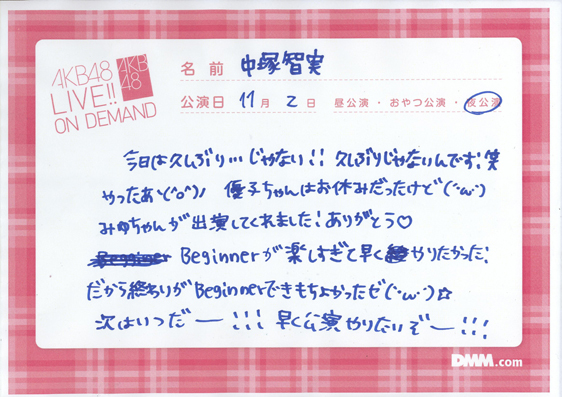 AKB48
LIVE!!
ON DEMAND
AKB
48
名前 中塚智実
公演日 11月 2日 昼公演・おやつ公演・夜公演
今日は久しぶり…じゃない!! 久しぶりじゃないんです!笑
やったあヽ(^o^)ノ 優子ちゃんはお休みだったけど(´・ω・`)
みゆちゃんが出演してくれました!ありがとう♡
Beginnerが楽しすぎて早くやりたかった!
だから終わりがBeginnerできもちよかったぜ(`・ω・´)☆
次はいつだー!!! 早く公演やりたいぞー!!!
DMM.com